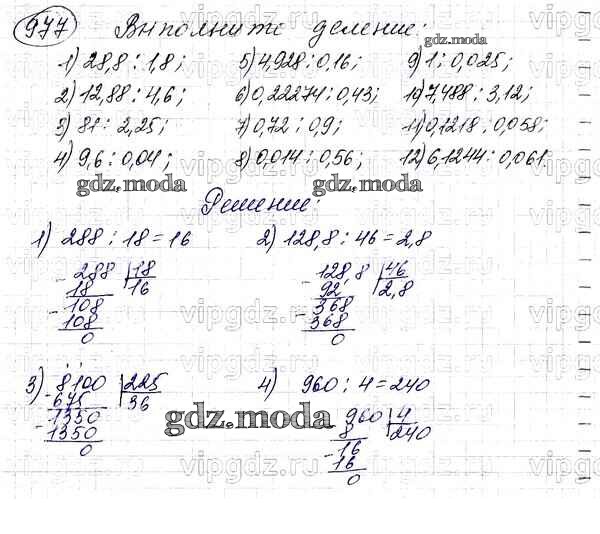 977 Выполните деление:
1) 28,8 : 1,8; 5) 4,928 : 0,16; 9) 1 : 0,025;
2) 12,88 : 4,6; 6) 0,22274 : 0,43; 10) 7,488 : 3,12;
3) 81 : 2,25; 7) 0,72 : 0,9; 11) 0,1218 : 0,058;
4) 9,6 : 0,04; 8) 0,014 : 0,56; 12) 6,1244 : 0,061.
Решение:
1) 288 : 18 = 16 2) 128,8 : 46 = 2,8
- 288 | 18
18 | 16
- 108
108
0
- 128,8 | 46
92 | 2,8
- 368
368
0
3) - 8100 | 225
675 | 36
- 1350
1350
0
4) 960 : 4 = 240
- 960 | 4
8 | 240
- 16
16
0
gdz.moda
gdz.moda
gdz.moda
gdz.moda
gdz.moda
vipgdz.ru